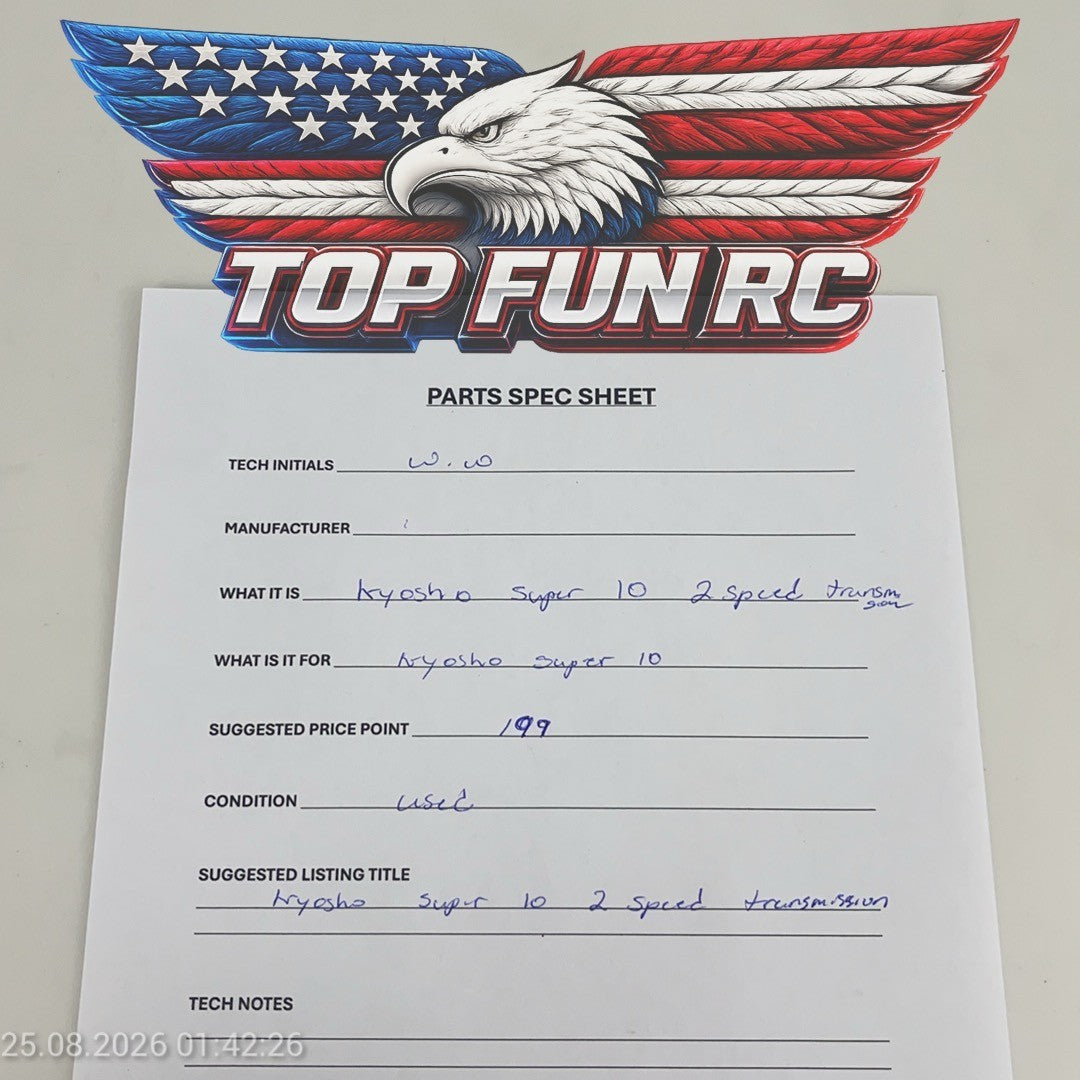 TOP FUN RC
PARTS SPEC SHEET
TECH INITIALS w.w
MANUFACTURER
WHAT IT IS Kyosho super 10 2 speed transmi
ssion
WHAT IS IT FOR Kyosho super 10
SUGGESTED PRICE POINT 199
CONDITION used
SUGGESTED LISTING TITLE
Kyosho super 10 2 speed transmission
TECH NOTES
25.08.2026 01:42:26